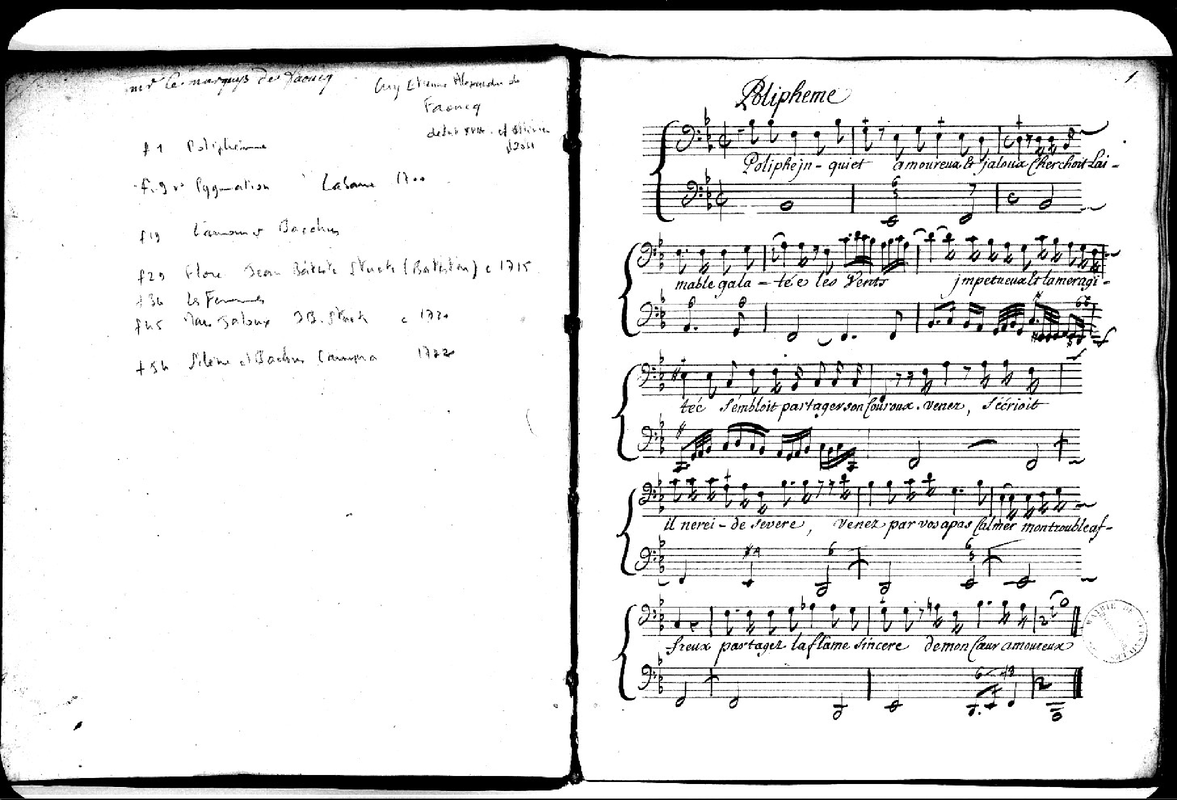 mr le marquis de faoucq
Guy Etienne Alexandre de
Faoucq
debut XVIII
f 1 Poliphemme
f. 9 v Pygmalion Labarre 1700
f 19 L'amour et Bacchus
f 29 Flore Jean Batiste Stuck (Batistin) c 1715
f 36 Les Femmes
f 45 Mars Jaloux JB. Stuck c 1720
f 54 Silène et Bachus Campra 1722
1
Polipheme
Poliphe jn - quiet amoureux Et jaloux Cherchoit Lai -
mable gala - tée les Vents jmpetueux Et la mer agi -
tée sembloit partager son Couroux. venez, s'écrioit
il nerei - de severe, venez par vos apas Calmer mon trouble af -
freux partagez la flâme sincere de mon Cœur amoureux